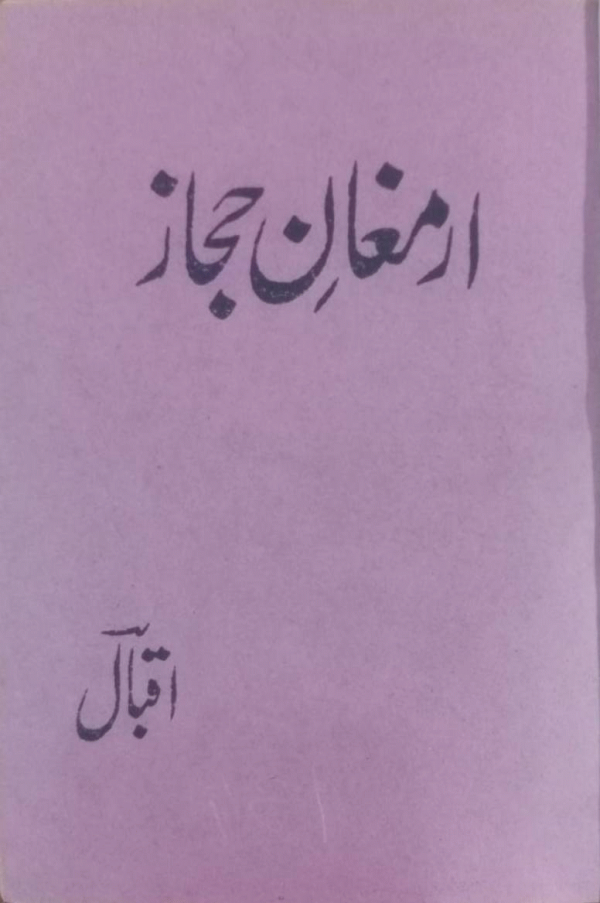 ارمغانِ حجاز
اقبالؔ